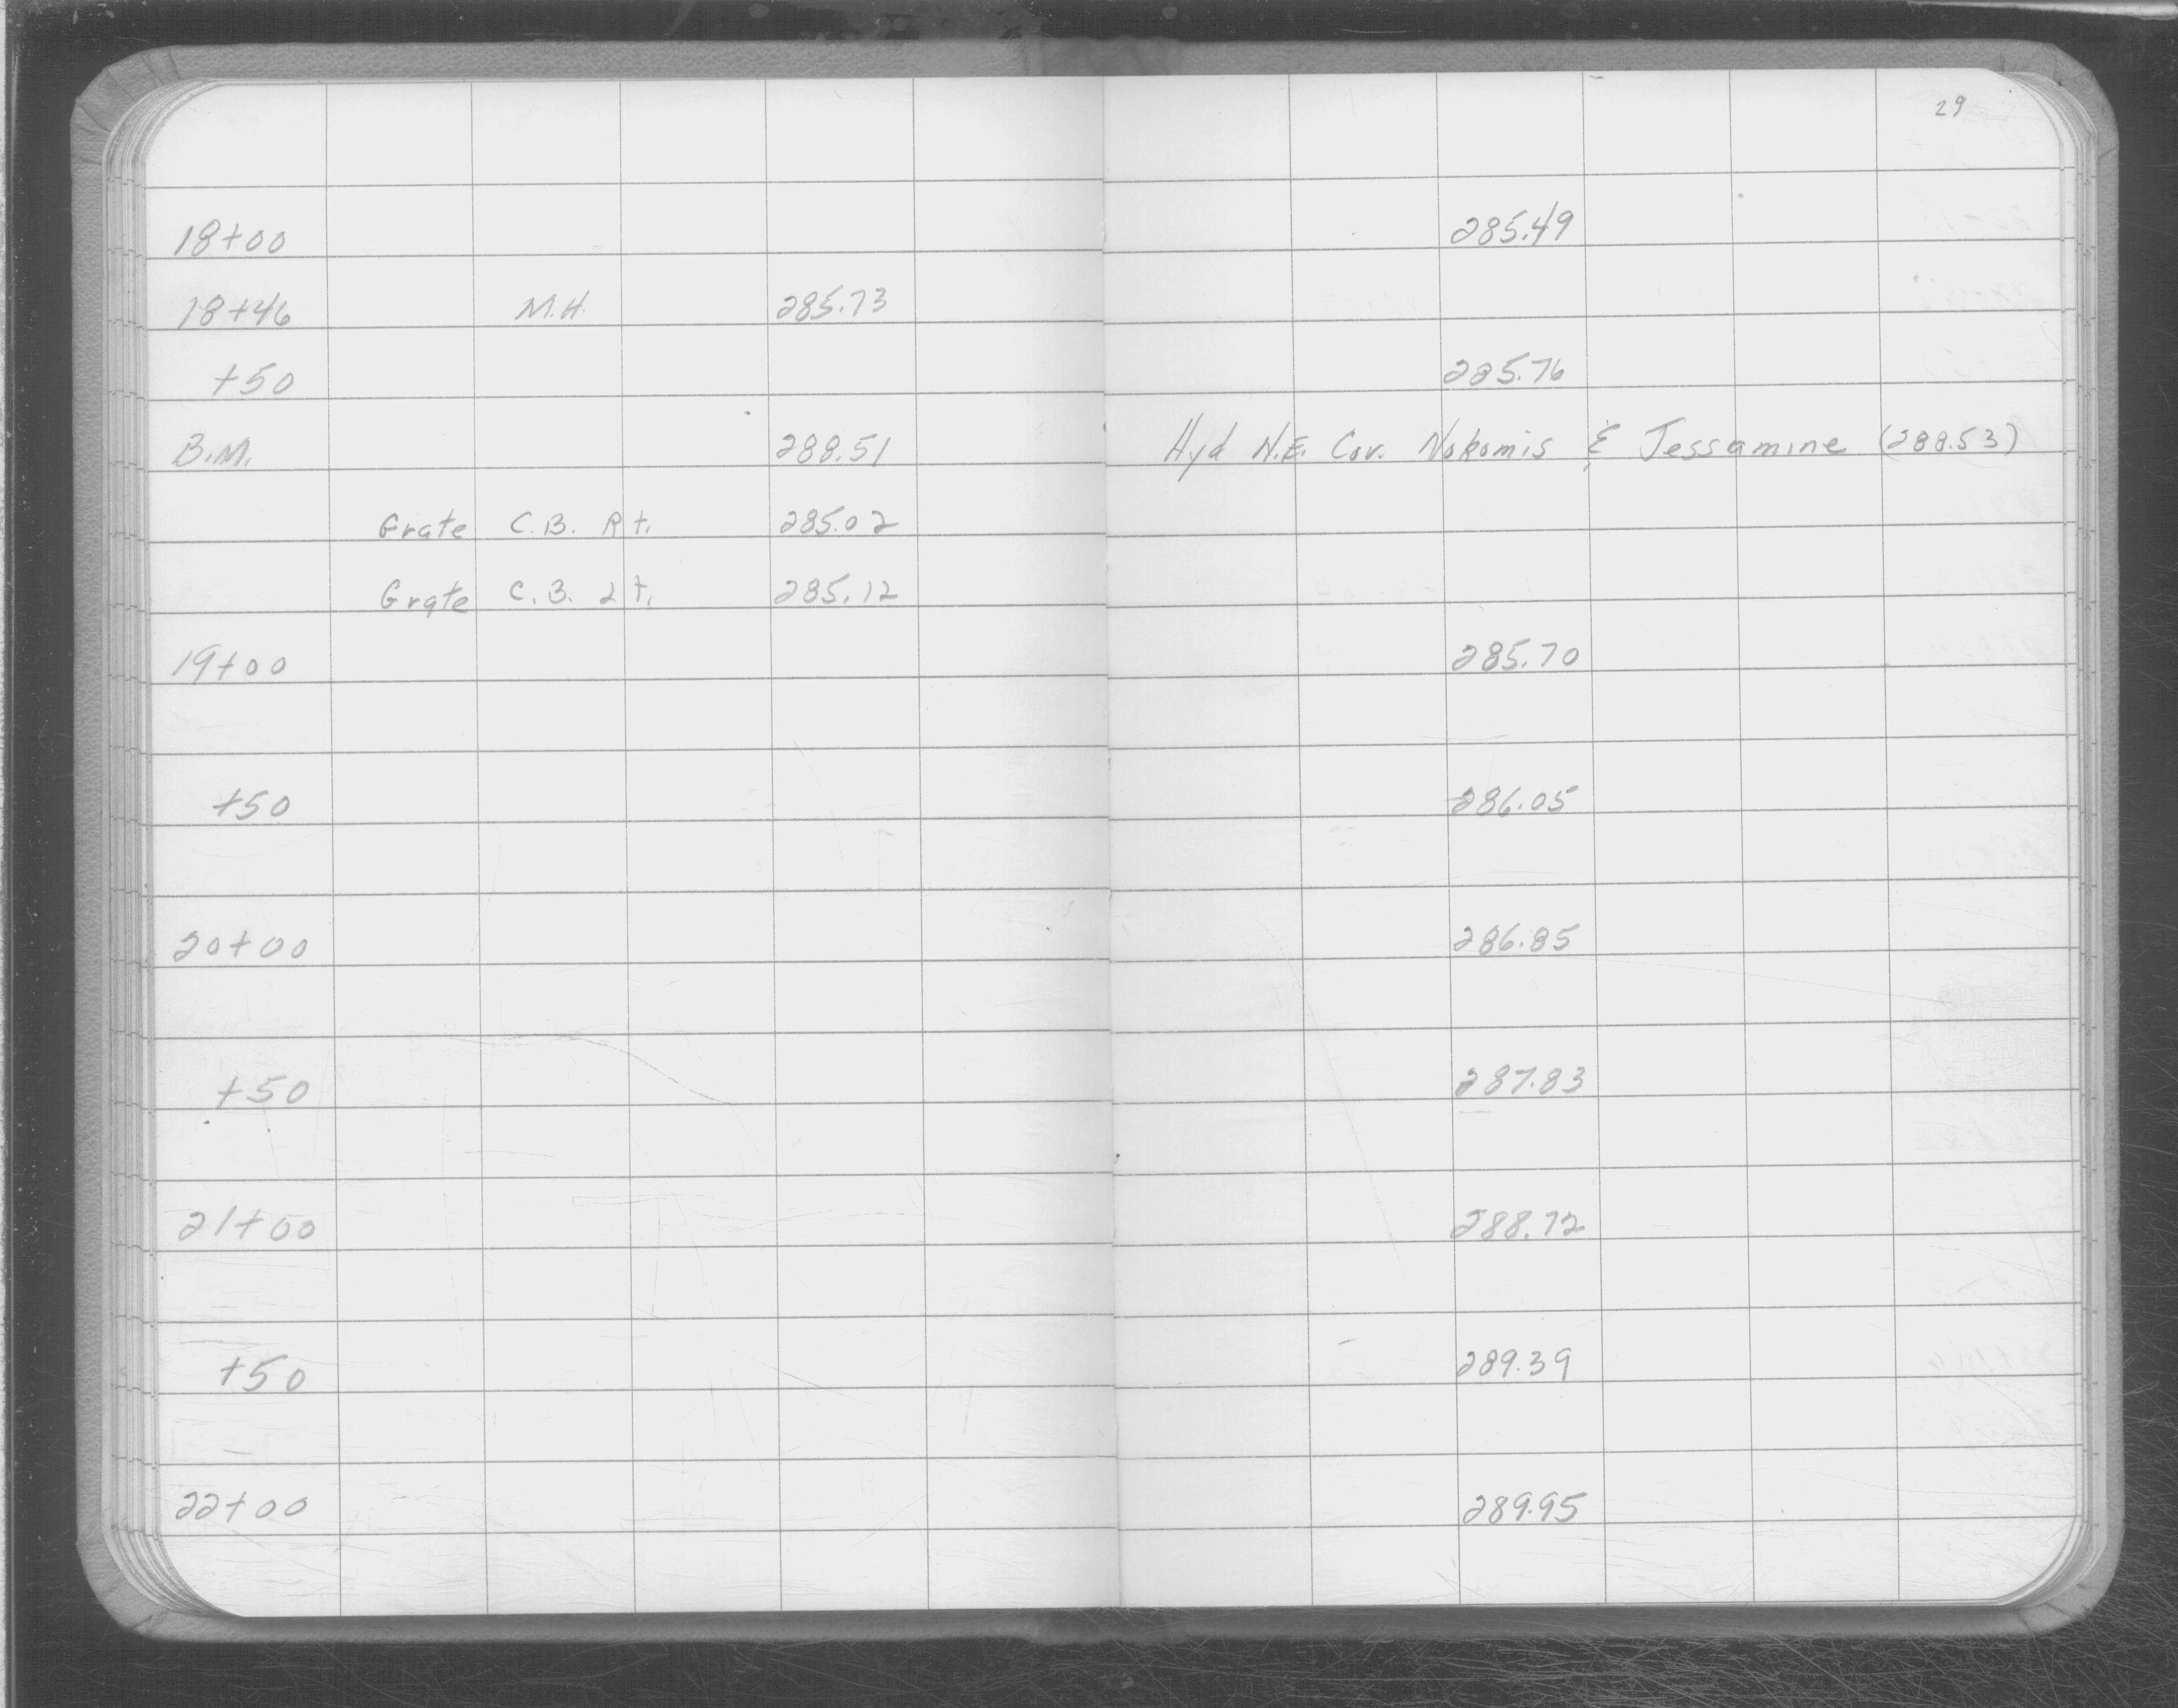 29
18+00 285.49
18+46 M.H. 285.73
+50 285.76
B.M. 288.51 Hyd N.E. Cor. Nokomis & Jessamine (288.53)
Grate C.B. Rt. 285.02
Grate C.B. Lt. 285.12
19+00 285.70
+50 286.05
20+00 286.85
+50 287.83
21+00 288.72
+50 289.39
22+00 289.95